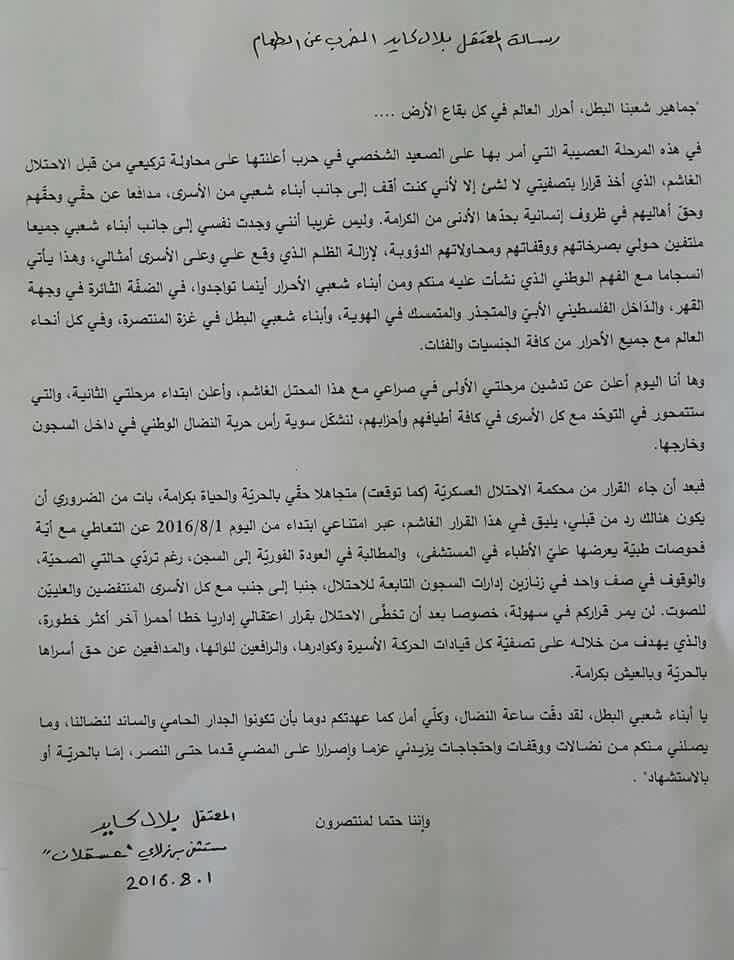 رسالة المعتقل بلال كايد المضرب عن الطعام
"جماهير شعبنا البطل، أحرار العالم في كل بقاع الأرض ....
في هذه المرحلة العصيبة التي أمر بها على الصعيد الشخصي في حرب أعلنتها على محاولة تركيعي من قبل الاحتلال
الغاشم، الذي أخذ قرارا بتصفيتي لا لشئ إلا لأني كنت أقف إلى جانب أبناء شعبي من الأسرى، مدافعا عن حقّي وحقّهم
وحقّ أهاليهم في ظروف إنسانية بحدّها الأدنى من الكرامة. وليس غريبا أنني وجدت نفسي إلى جانب أبناء شعبي جميعا
ملتفين حولي بصرخاتهم ووقفاتهم ومحاولاتهم الدؤوبة، لإزالة الظلم الذي وقع علي وعلى الأسرى أمثالي، وهذا يأتي
انسجاما مع الفهم الوطني الذي نشأت عليه منكم ومن أبناء شعبي الأحرار أينما تواجدوا، في الضفّة الثائرة في وجهة
القهر، والدّاخل الفلسطيني الأبيّ والمتجذر والمتمسك في الهوية، وأبناء شعبي البطل في غزة المنتصرة، وفي كل أنحاء
العالم مع جميع الأحرار من كافة الجنسيات والفئات.
وها أنا اليوم أعلن عن تدشين مرحلتي الأولى في صراعي مع هذا المحتل الغاشم، وأعلن ابتداء مرحلتي الثانية، والتي
ستتمحور في التوحّد مع كل الأسرى في كافة أطيافهم وأحزابهم، لنشكّل سوية رأس حربة النضال الوطني في داخل السجون
وخارجها.
فبعد أن جاء القرار من محكمة الاحتلال العسكريّة (كما توقعت) متجاهلا حقّي بالحريّة والحياة بكرامة، بات من الضروري أن
يكون هنالك رد من قبلي، يليق في هذا القرار الغاشم، عبر امتناعي ابتداء من اليوم 2016/8/1 عن التعاطي مع أيّة
فحوصات طبيّة يعرضها عليّ الأطباء في المستشفى، والمطالبة في العودة الفوريّة إلى السجن، رغم تردّي حالتي الصحيّة،
والوقوف في صف واحد في زنازين إدارات السجون التابعة للاحتلال، جنبا إلى جنب مع كل الأسرى المنتفضين والعليين
للصوت. لن يمر قراركم في سهولة، خصوصا بعد أن تخطّى الاحتلال بقرار اعتقالي إداريا خطا أحمرا آخر أكثر خطورة،
والذي يهدف من خلاله على تصفيّة كل قيادات الحركة الأسيرة وكوادرها، والرافعين للوائها، والمدافعين عن حق أسراها
بالحريّة وبالعيش بكرامة.
يا أبناء شعبي البطل، لقد دقّت ساعة النضال، وكلّي أمل كما عهدتكم دوما بأن تكونوا الجدار الحامي والساند لنضالنا، وما
يصلني منكم من نضالات ووقفات واحتجاجات يزيدني عزما وإصرارا على المضي قدما حتى النصر، إمّا بالحريّة أو
بالاستشهاد" .
وإننا حتما لمنتصرون
المعتقل بلال كايد
مستشفى برزلاي "عسقلان"
2016.8.1